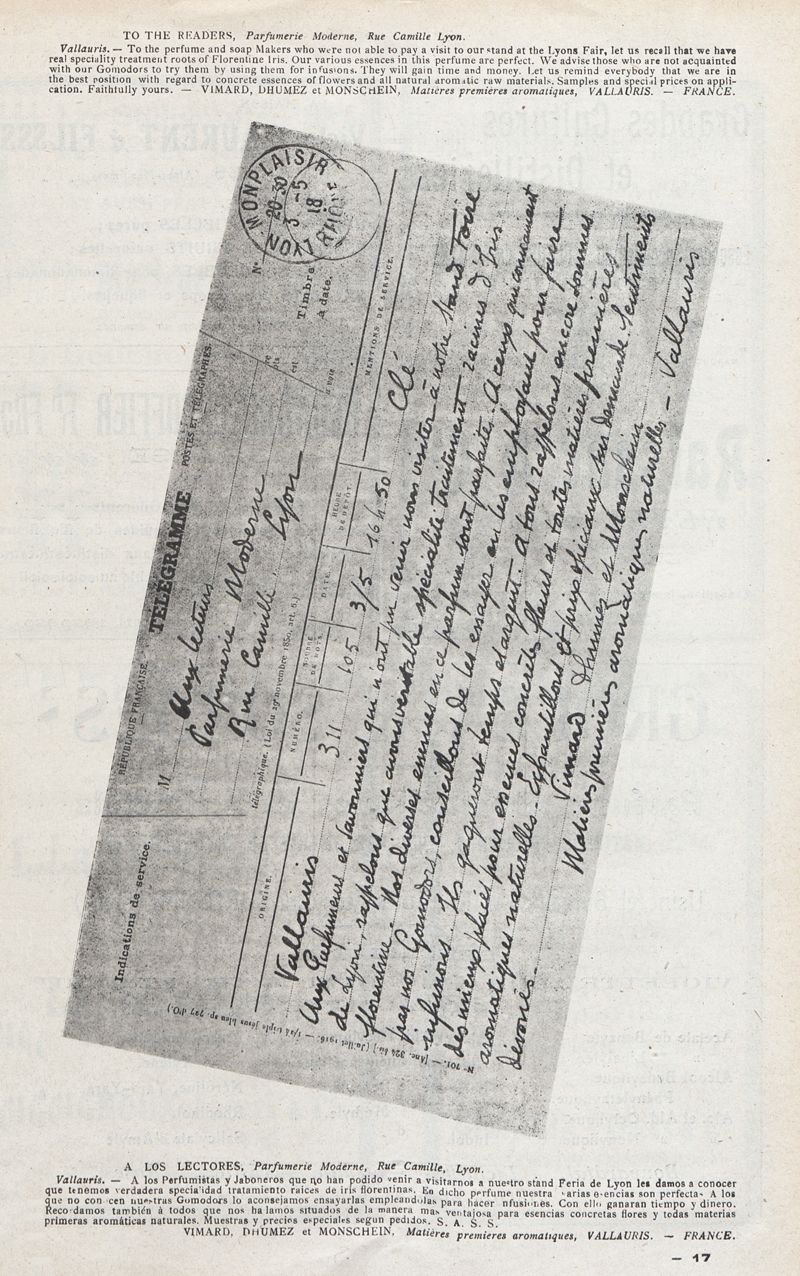 TO THE READERS, Parfumerie Moderne, Rue Camille Lyon.
Vallauris. — To the perfume and soap Makers who were not able to pay a visit to our stand at the Lyons Fair, let us recall that we have
real speciality treatment roots of Florentine Iris. Our various essences in this perfume are perfect. We advise those who are not acquainted
with our Gomodors to try them by using them for infusions. They will gain time and money. Let us remind everybody that we are in
the best position with regard to concrete essences of flowers and all natural aromatic raw materials. Samples and special prices on appli-
cation. Faithfully yours. — VIMARD, DHUMEZ et MONSCHEIN, Matières premières aromatiques, VALLAURIS. — FRANCE.
MONPLAISIR
20-30
3 -5
18
LYON RHÔNE
N°
Timbre
à date.
RÉPUBLIQUE FRANÇAISE.
POSTES ET TÉLÉGRAPHES.
TÉLÉGRAMME
Indications de service.
M
Aux lecteurs
Parfumerie Moderne
Rue Camille, Lyon
télégraphique. (Loi du 29 novembre 1850, art. 6.)
ORIGINE. NUMÉRO. NOMBRE DE MOTS. DATE. HEURE DE DÉPÔT. MENTIONS DE SERVICE.
Vallauris 311 105 3/5 16 h 50 Clé
Aux Parfumeurs et Savonniers qui n'ont pu venir nous visiter à notre stand Foire
de Lyon, rappelons que avons véritable spécialité traitement racines d'Iris
florentine. Nos diverses essences en ce parfum sont parfaites. A ceux qui connaissent
pas nos Gomodors, conseillons de les essayer en les employant pour faire
infusions. Ils gagneront temps et argent. A tous rappelons encore sommes
des mieux placés pour essences concrètes fleurs et toutes matières premières
aromatiques naturelles. Echantillons et prix spéciaux sur demande. Sentiments
dévoués.
Vimard Dhumez et Monschein
Matières premières aromatiques naturelles - Vallauris
A LOS LECTORES, Parfumerie Moderne, Rue Camille, Lyon.
Vallauris. — A los Perfumistas y Jaboneros que no han podido venir a visitarnos a nuestro stand Feria de Lyon les damos a conocer
que tenemos verdadera especialidad tratamiento raices de iris florentinas. En dicho perfume nuestra varias esencias son perfectas A los
que no conocen nuestras Gomodors lo aconsejamos ensayarlas empleandolas para hacer infusiones. Con ello ganaran tiempo y dinero.
Recordamos también à todos que nos hallamos situados de la manera mas ventajosa para esencias concretas flores y todas materias
primeras aromáticas naturales. Muestras y precios especiales segun pedidos. S. A. S. S.
VIMARD, DHUMEZ et MONSCHEIN, Matières premieres aromatiques, VALLAURIS. — FRANCE.
— 17